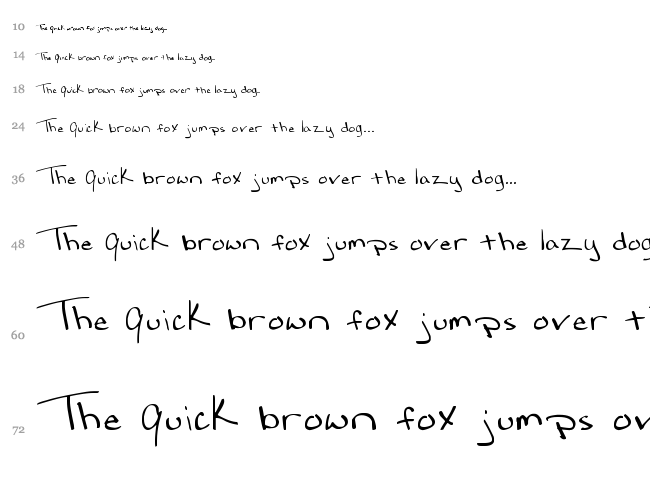 10 The quick brown fox jumps over the lazy dog...
14 The quick brown fox jumps over the lazy dog...
18 The quick brown fox jumps over the lazy dog...
24 The quick brown fox jumps over the lazy dog...
36 The quick brown fox jumps over the lazy dog...
48 The quick brown fox jumps over the lazy dog
60 The quick brown fox jumps over t
72 The quick brown fox jumps ov